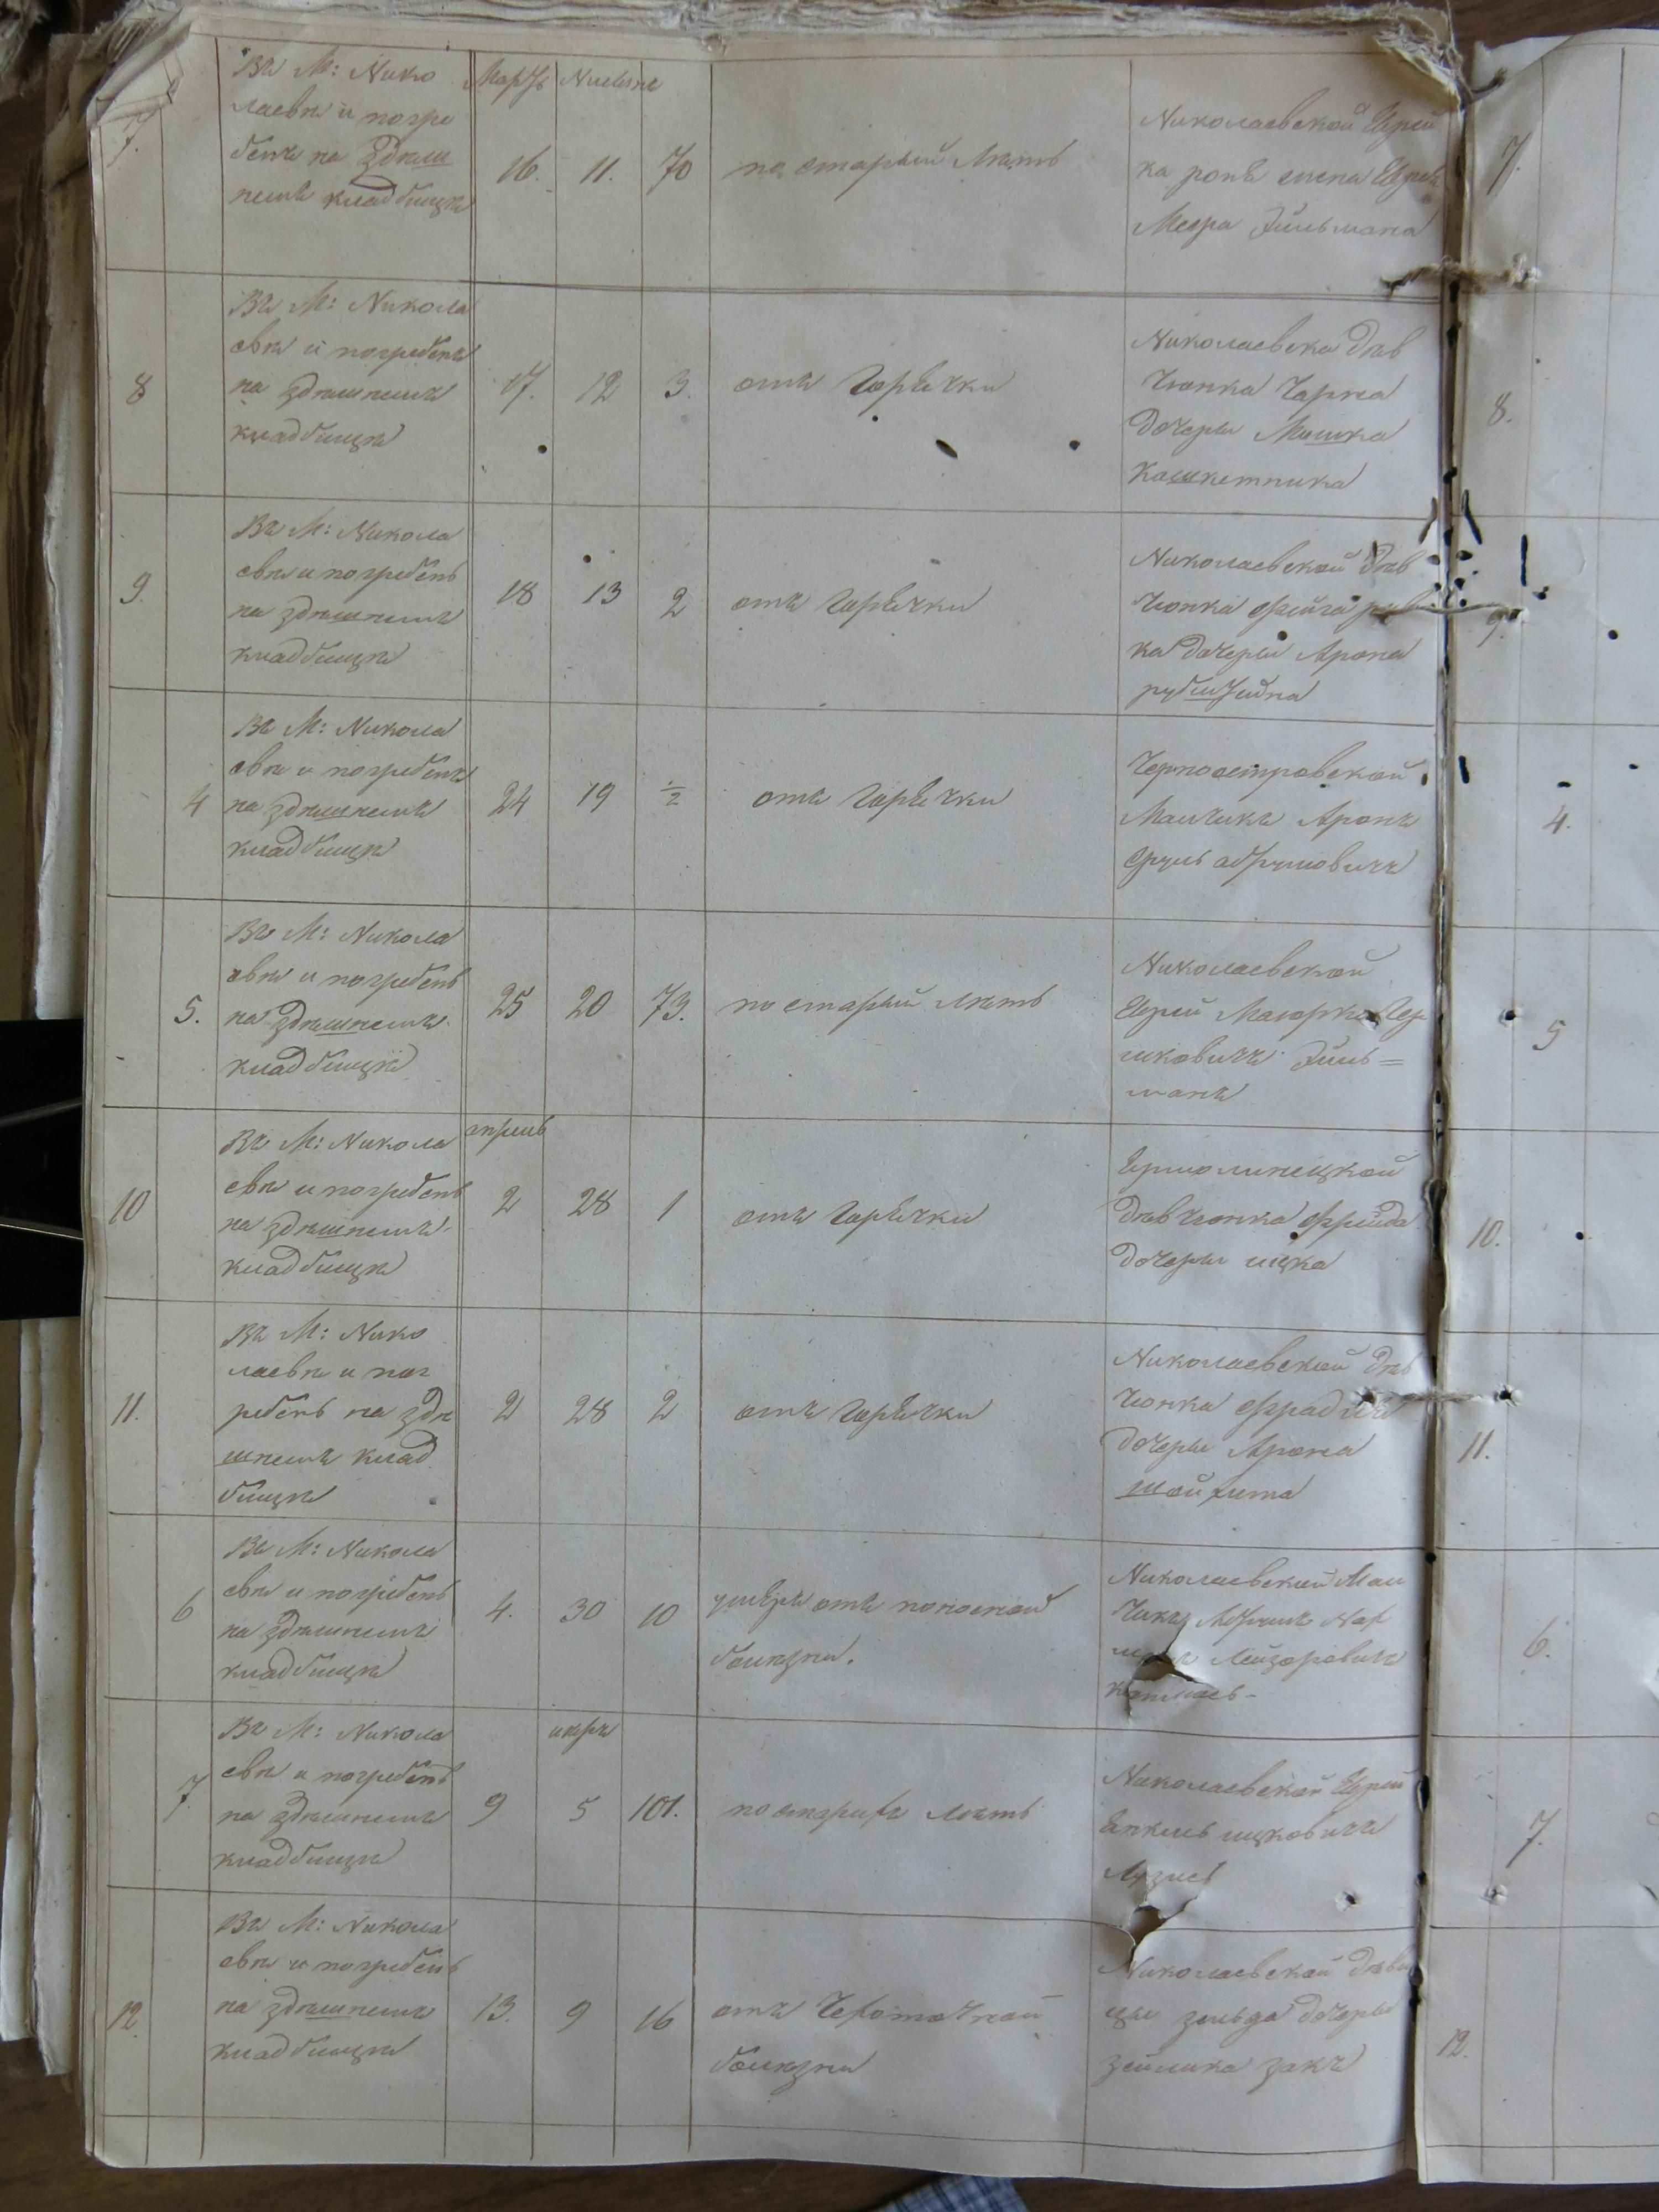 7.
Въ М: Нико
лаевѣ и погре
бенъ на здѣш
немъ кладбищѣ
Мартъ
16.
11.
70
по старый лѣтъ
Николаевской Еврей
ка
Меера Зильмана
7.
8
Въ М: Никола
евѣ и погребенъ
на здѣшнемъ
кладбищѣ
17.
12
3.
отъ горѣчки
Николаевска дѣв
чонка Чарна
дочеры Мошка
Кашкетника
8.
9.
Въ М: Никола
евѣ и погребенъ
на здѣшнемъ
кладбищѣ
18
13
2
отъ горѣчки
Николаевской дѣв
чонка фейга
ка дочеры Арона
9.
4
Въ М: Никола
евѣ и погребенъ
на здѣшнемъ
кладбищѣ
24
19
1/2
отъ горѣчки
Черноостровской
Малчикъ Аронъ
4.
5.
Въ М: Никола
евѣ и погребенъ
на здѣшнемъ
кладбищѣ
25
20
73.
по старый лѣтъ
Николаевской
Еврей
шковичъ Зиль=
манъ
5
10
Въ М: Никола
евѣ и погребенъ
на здѣшнемъ
кладбищѣ
апрель
2
28
1
отъ горѣчки
Ермолинецкой
дѣвчонка фрейда
дочеры ицка
10.
11.
Въ М: Нико
лаевѣ и пог
ребенъ на здѣ
шнемъ клад
бищѣ
2
28
2
отъ горѣчки
Николаевской дѣв
чонка
дочеры Арона
11.
6
Въ М: Никола
евѣ и погребенъ
на здѣшнемъ
кладбищѣ
4.
30
10
умеръ отъ поносной
болѣзни.
Николаевский Мал
чикъ
Лейзоровичъ
6.
7.
Въ М: Никола
евѣ и погребенъ
на здѣшнемъ
кладбищѣ
9
5
101.
по старихъ лѣтъ
Николаевской Еврей
Янкель ицковичъ
7.
12.
Въ М: Никола
евѣ и погребенъ
на здѣшнемъ
кладбищѣ
13.
9
16
отъ Чехоточной
болѣзни
Николаевской дѣви
цы зельда дочеры
зейлика закъ
12.